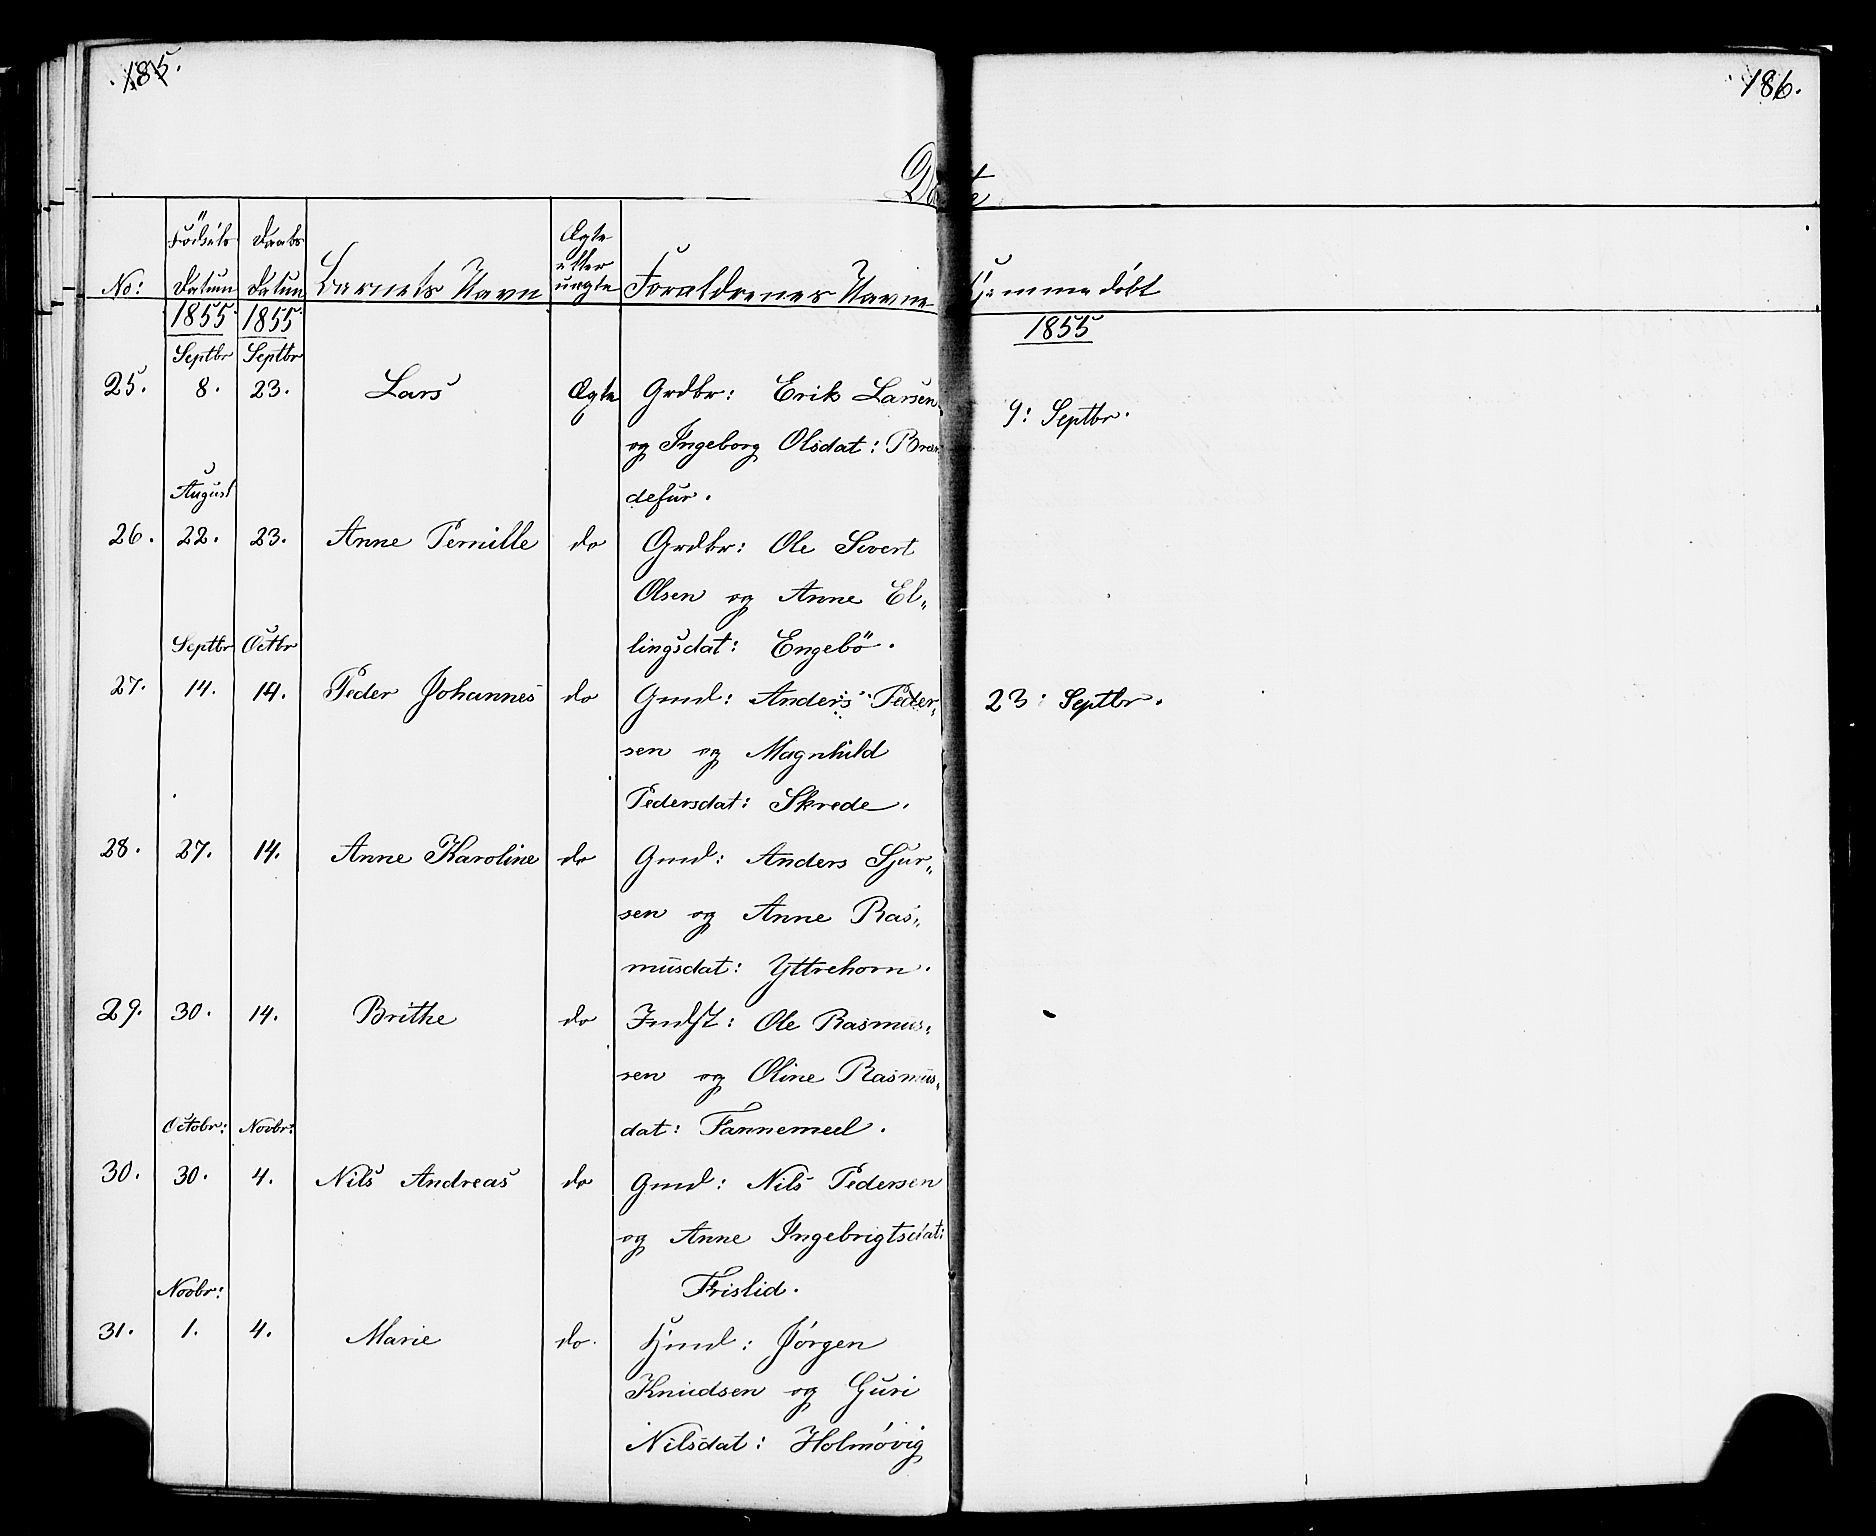 185.
186.
Døbte
No:
Födsels Datum
Daabs Datum
Barnets Navn
Ægte eller uægte
Forældrenes Navne
Hjemmedöbt
1855 1855
1855
Septbr Septbr
25. 8. 23. Lars Ægte Grdbr: Erik Larsen
9: Septbr.
og Ingeborg Olsdat:
August
defur.
26. 22. 23. Anne Pernille do Grdbr: Ole Sivert
Olsen og Anne El„
Septbr Octbr lingsdat: Engebö.
27. 14. 14. Peder Johannes do Gmd: Anders Peder„
23: Septbr.
sen og Magnhild
Pedersdat: Skrede.
28. 27. 14. Anne Karoline do Gmd: Anders Sjur„
sen og Anne Ras„
musdat: Yttrehorn.
29. 30. 14. Brithe do Indst: Ole Rasmus„
sen og Oline Rasmus„
Octobr: Novbr: dat: Fannemeel.
30. 30. 4. Nils Andreas do Gmd: Nils Pedersen
og Anne Ingebrigtsdat:
Novbr: Frislid.
31. 1. 4. Marie do. Hjmd: Jörgen
Knudsen og Guri
Nilsdat: Holmövig